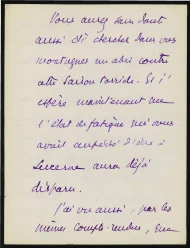 Vous aurez sans doute
aussi dû chercher dans vos
montagnes un abri contre
cette saison torride. Et j'
espère maintenant que
l'état de fatigue qui vous
avait empêché d'être à
Lucerne aura déjà
disparu.
J'ai vu aussi, par les
mêmes comptes-rendus, que